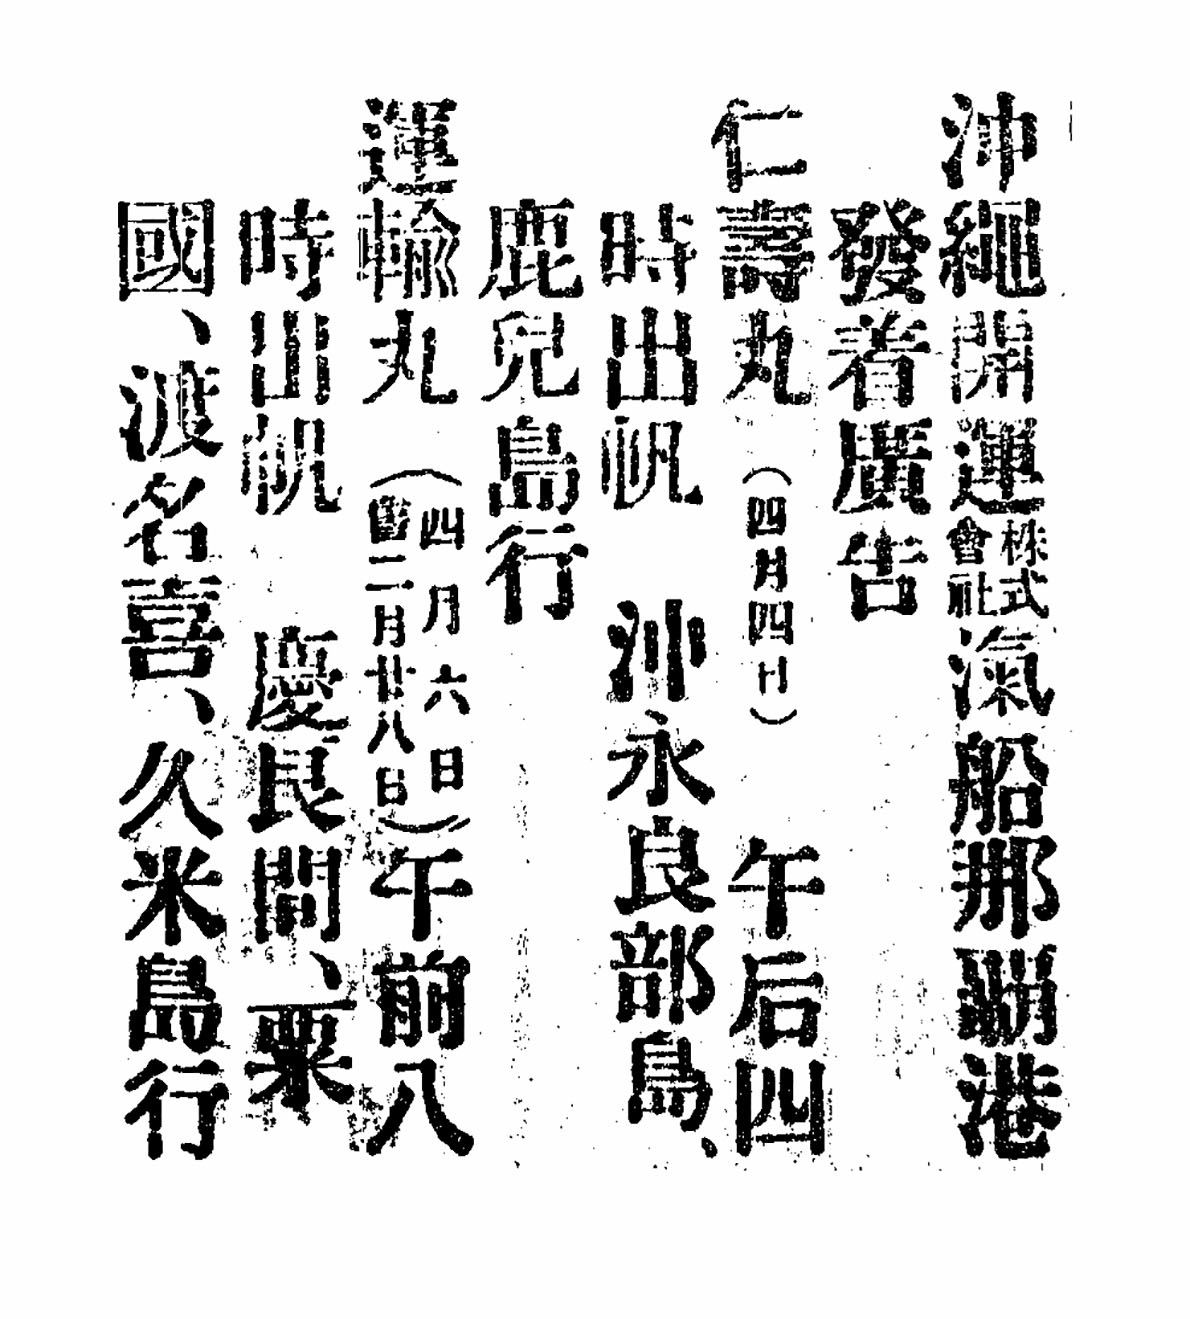 沖繩開運株式會社滊船那覇港
發着廣告
仁壽丸（四月四日）午后四
時出帆　沖永良部島、
鹿兒島行
運輸丸（四月六日舊二月廿八日）午前八
時出帆　慶良間、粟
國、渡名喜、久米島行